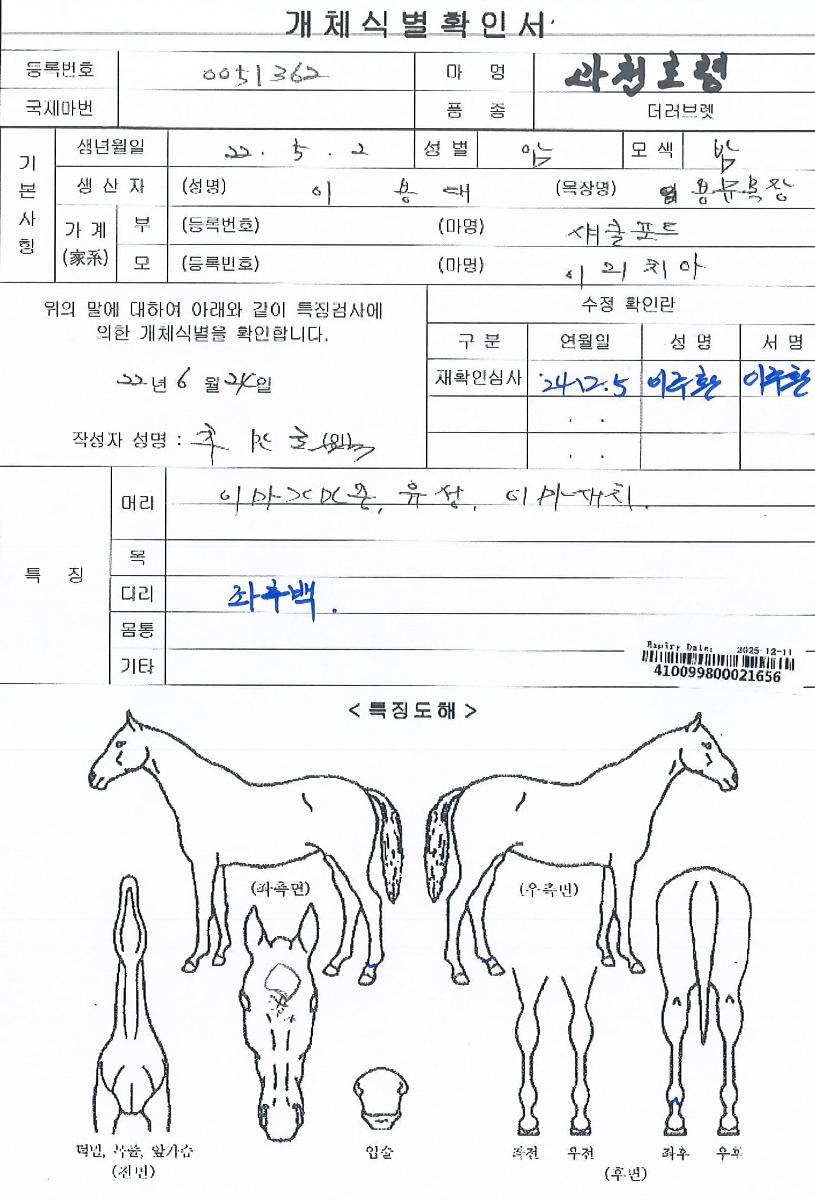 개체식별확인서
등록번호 0051362 마 명 과천호령
국제마번 품 종 더러브렛
기본사항
생년월일 22. 5. 2 성 별 암 모 색 밤
생 산 자 (성명) 이 용 대 (목장명) 용문목장
가 계 (家系) 부 (등록번호) (마명) 섀클포드
모 (등록번호) (마명)
위의 말에 대하여 아래와 같이 특징검사에
의한 개체식별을 확인합니다.
22년 6 월 24일
작성자 성명 : (인)
수정 확인란
구 분 연월일 성 명 서 명
재확인심사 '24.12.5 이주환 이주환
. .
. .
특 징
머리 유성,
목
다리 좌후백.
몸통
기타
Expiry Date: 2025-12-11
410099800021656
< 특징도해 >
(좌측면) (우측면)
턱밑, 목쫄, 앞가슴
(전면)
입술
좌전 우전 좌후 우후
(후면)